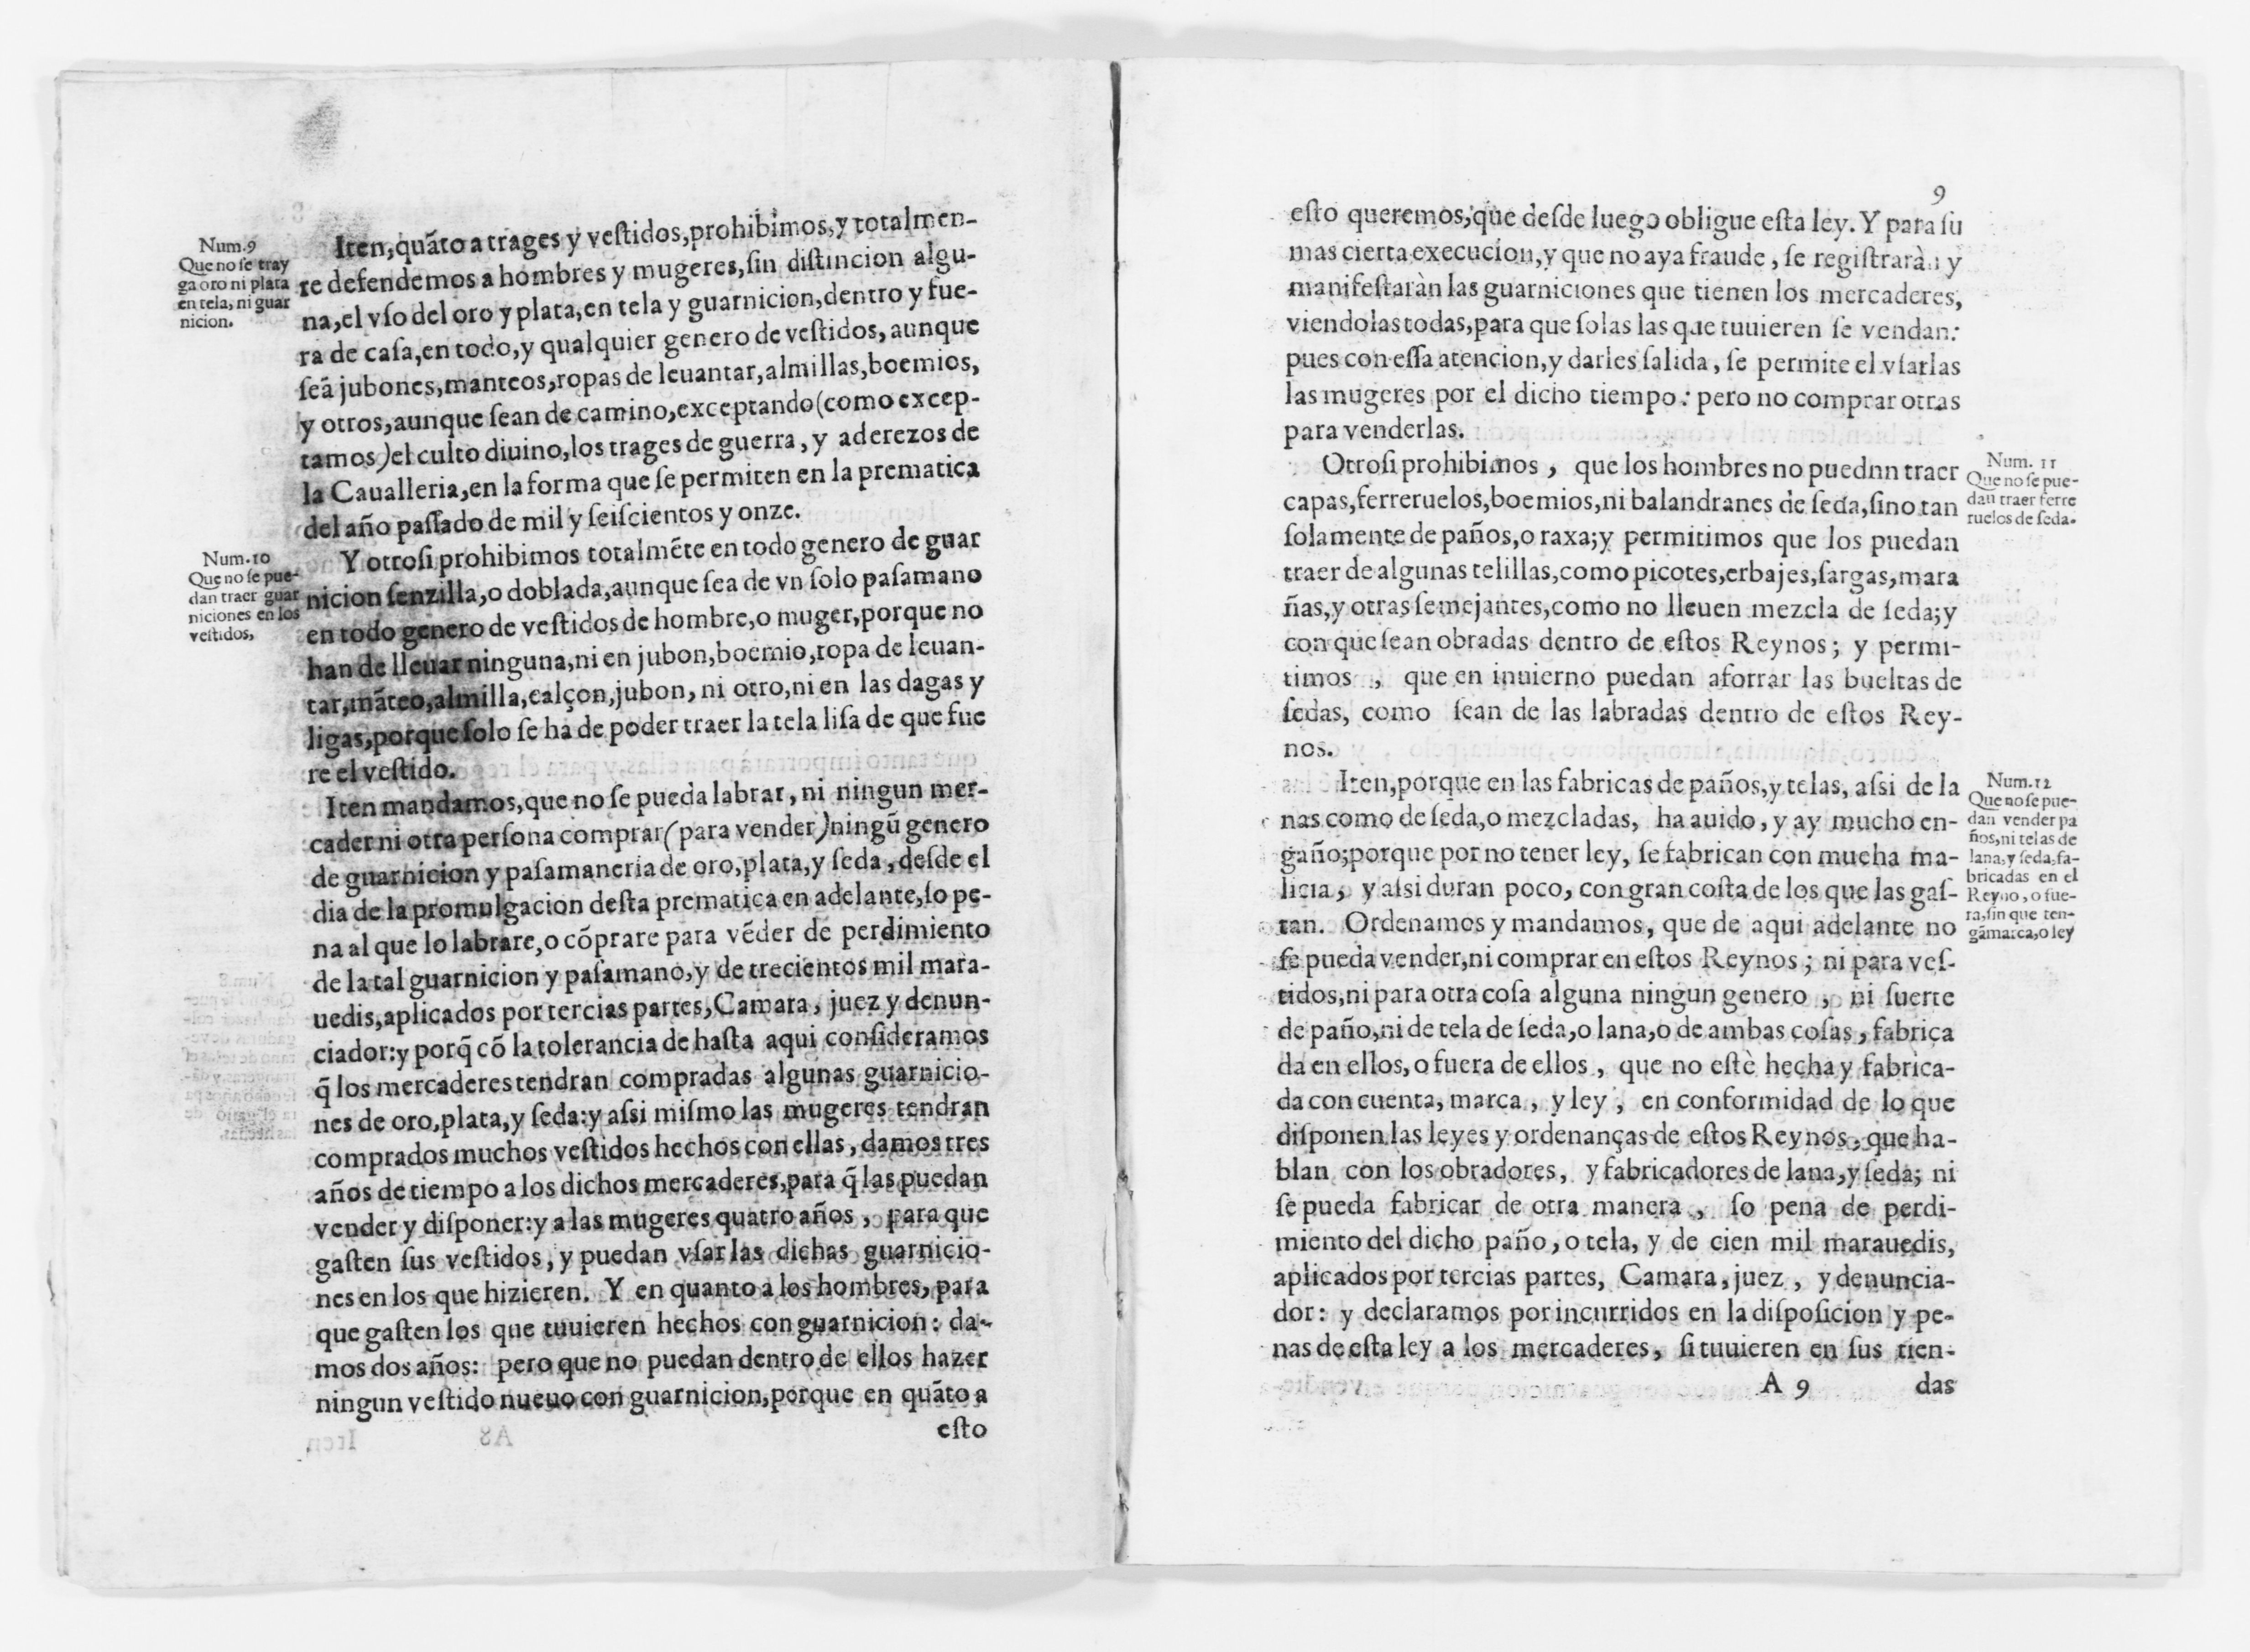 Num.9
Que no se tray
ga oro ni plata
en tela, ni guar
nicion.
Iten, quãto a trages y veſtidos, prohibimos, y totalmen-
te defendemos a hombres y mugeres, ſin diſtincion algu-
na, el vſo del oro y plata, en tela y guarnicion, dentro y fue-
ra de caſa, en todo, y qualquier genero de veſtidos, aunque
ſeã jubones, manteos, ropas de leuantar, almillas, boemios,
y otros, aunque ſean de camino, exceptando (como excep-
tamos) el culto diuino, los trages de guerra, y aderezos de
la Caualleria, en la forma que ſe permiten en la prematica
del año paſſado de mil y ſeiſcientos y onze.
Num.10
Que no ſe pue-
dan traer guar
niciones en los
veſtidos,
Y otroſi prohibimos totalmẽte en todo genero de guar
nicion ſenzilla, o doblada, aunque ſea de vn ſolo paſamano
en todo genero de veſtidos de hombre, o muger, porque no
han de lleuar ninguna, ni en jubon, boemio, ropa de leuan-
tar, mãteo, almilla, calçon, jubon, ni otro, ni en las dagas y
ligas, porque ſolo ſe ha de poder traer la tela liſa de que fue
re el veſtido.
Iten mandamos, que no ſe pueda labrar, ni ningun mer-
cader ni otra perſona comprar (para vender) ningũ genero
de guarnicion y paſamaneria de oro, plata, y ſeda, deſde el
dia de la promulgacion deſta prematica en adelante, ſo pe-
na al que lo labrare, o cõprare para vẽder de perdimiento
de la tal guarnicion y paſamano, y de trecientos mil mara-
uedis, aplicados por tercias partes, Camara, juez y denun-
ciador: y porq̃ cõ la tolerancia de haſta aqui conſideramos
q̃ los mercaderes tendran compradas algunas guarnicio-
nes de oro, plata, y ſeda: y aſsi miſmo las mugeres tendran
comprados muchos veſtidos hechos con ellas, damos tres
años de tiempo a los dichos mercaderes, para q̃ las puedan
vender y diſponer: y a las mugeres quatro años, para que
gaſten ſus veſtidos, y puedan vſar las dichas guarnicio-
nes en los que hizieren. Y en quanto a los hombres, para
que gaſten los que tuuieren hechos con guarnicion: da-
mos dos años: pero que no puedan dentro de ellos hazer
ningun veſtido nueuo con guarnicion, porque en quãto a
eſto
9
eſto queremos, que deſde luego obligue eſta ley. Y para ſu
mas cierta execucion, y que no aya fraude, ſe regiſtraràn y
manifeſtaràn las guarniciones que tienen los mercaderes,
viendolas todas, para que ſolas las que tuuieren ſe vendan:
pues con eſſa atencion, y darles ſalida, ſe permite el vſarlas
las mugeres por el dicho tiempo: pero no comprar otras
para venderlas.
Otroſi prohibimos, que los hombres no puednn traer
capas, ferreruelos, boemios, ni balandranes de ſeda, ſino tan
ſolamente de paños, o raxa; y permitimos que los puedan
traer de algunas telillas, como picotes, erbajes, ſargas, mara
ñas, y otras ſemejantes, como no lleuen mezcla de ſeda; y
con que ſean obradas dentro de eſtos Reynos; y permi-
timos, que en inuierno puedan aforrar las bueltas de
ſedas, como ſean de las labradas dentro de eſtos Rey-
nos.
Num. 11
Que no ſe pue-
dan traer ferre
ruelos de ſeda.
Iten, porque en las fabricas de paños, y telas, aſsi de la
nas como de ſeda, o mezcladas, ha auido, y ay mucho en-
gaño; porque por no tener ley, ſe fabrican con mucha ma-
licia, y aſsi duran poco, con gran coſta de los que las gaſ-
tan. Ordenamos y mandamos, que de aqui adelante no
ſe pueda vender, ni comprar en eſtos Reynos; ni para veſ-
tidos, ni para otra coſa alguna ningun genero, ni ſuerte
de paño, ni de tela de ſeda, o lana, o de ambas coſas, fabrica
da en ellos, o fuera de ellos, que no eſtè hecha y fabrica-
da con cuenta, marca, y ley, en conformidad de lo que
diſponen las leyes y ordenanças de eſtos Reynos, que ha-
blan con los obradores, y fabricadores de lana, y ſeda; ni
ſe pueda fabricar de otra manera, ſo pena de perdi-
miento del dicho paño, o tela, y de cien mil marauedis,
aplicados por tercias partes, Camara, juez, y denuncia-
dor: y declaramos por incurridos en la diſpoſicion y pe-
nas de eſta ley a los mercaderes, ſi tuuieren en ſus tien-
Num.12
Que no ſe pue-
dan vender pa
ños, ni telas de
lana, y ſeda, fa-
bricadas en el
Reyno, o fue-
ra, ſin que ten-
gã marca, o ley
A 9 das